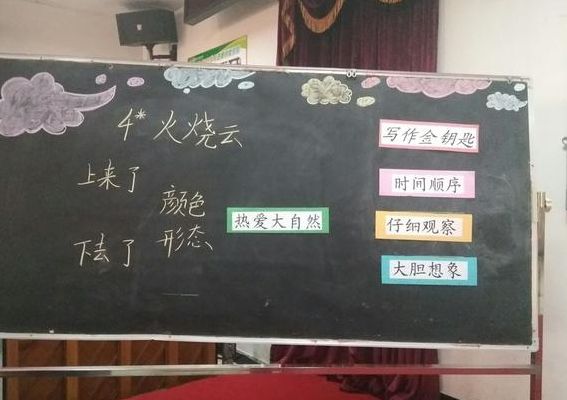 4* 火烧云
上来了
颜色
形态
下去了
热爱大自然
写作金钥匙
时间顺序
仔细观察
大胆想象